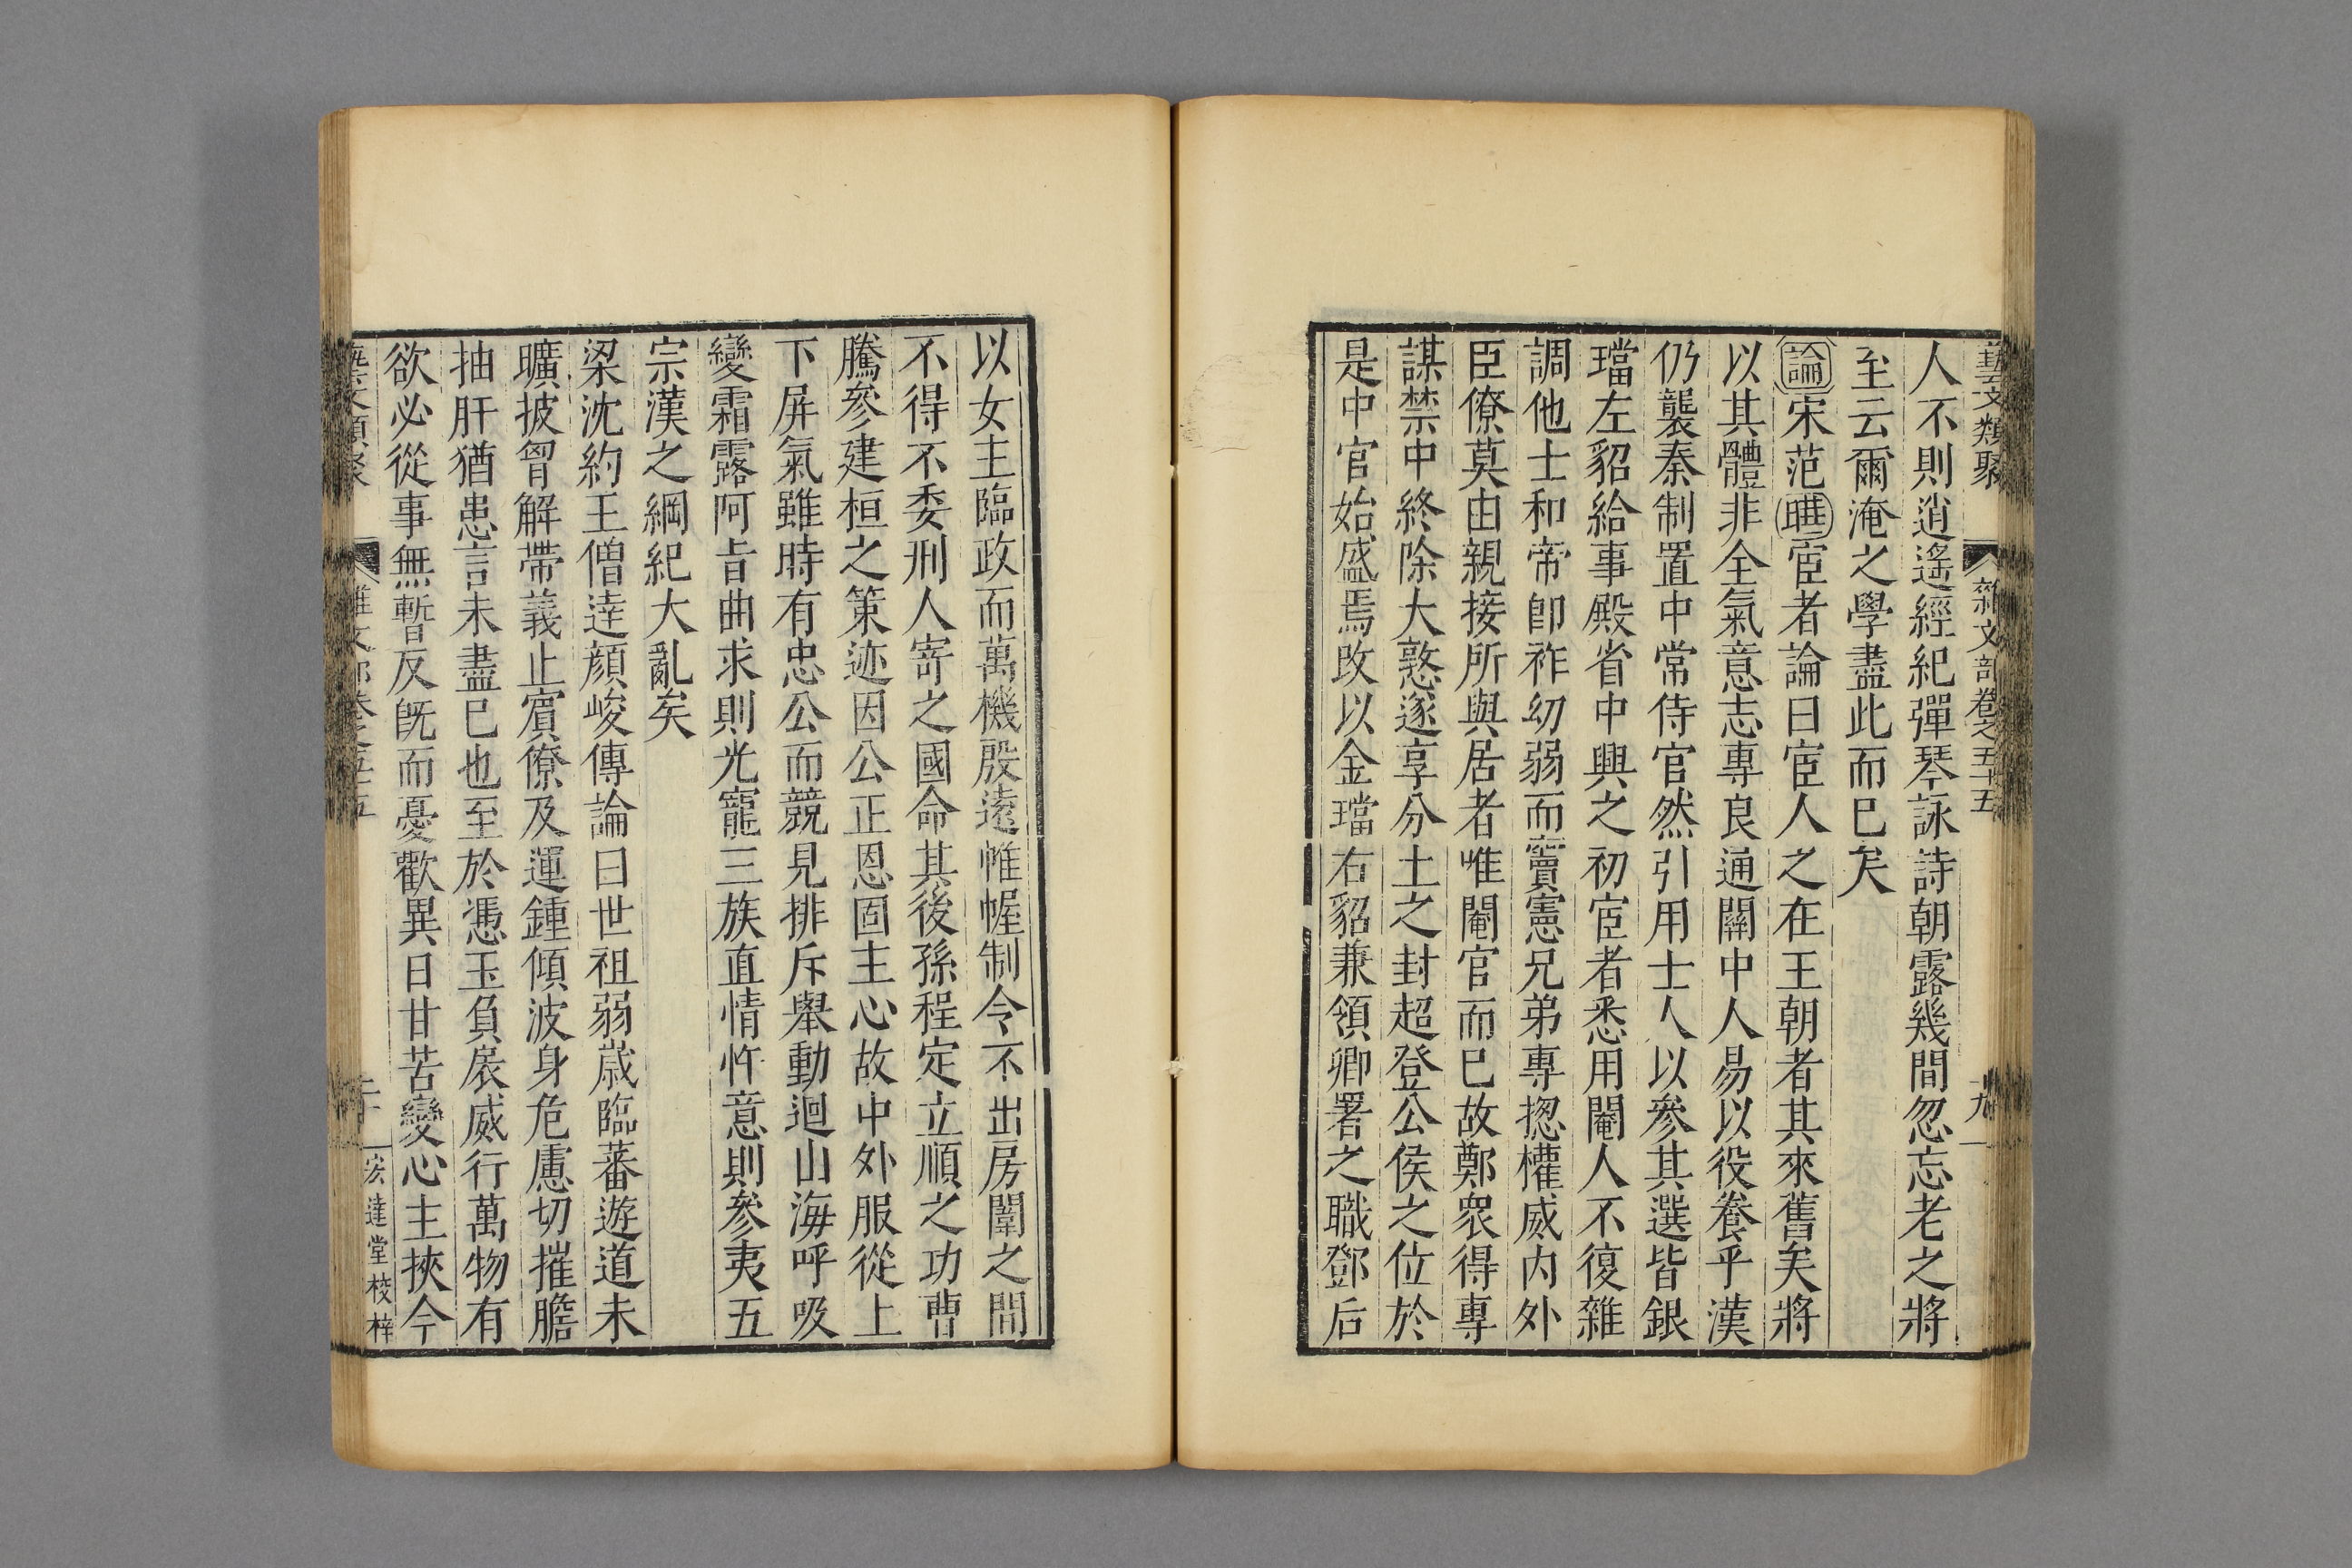 藝文類聚 雜文部卷之五十五 十九
人不則逍遙經紀彈琴詠詩朝露幾間忽忘老之將
至云爾淹之學盡此而已矣
論宋范曄宦者論曰宦人之在王朝者其來舊矣將
以其體非全氣意志專良通關中人易以役養乎漢
仍襲秦制置中常侍官然引用士人以參其選皆銀
璫左貂給事殿省中興之初宦者悉用閹人不復雜
調他士和帝卽祚幼弱而竇憲兄弟專揔權威內外
臣僚莫由親接所與居者唯閹官而已故鄭衆得專
謀禁中終除大憝遂享分土之封超登公侯之位於
是中官始盛焉改以金璫右貂兼領卿署之職鄧后
以女主臨政而萬機殷遠帷幄制令不出房闈之間
不得不委刑人寄之國命其後孫程定立順之功曹
騰參建桓之策迹因公正恩固主心故中外服從上
下屏氣雖時有忠公而競見排斥舉動迴山海呼吸
變霜露阿旨曲求則光寵三族直情忤意則參夷五
宗漢之綱紀大亂矣
梁沈約王僧達顏峻傳論曰世祖弱歲臨蕃遊道未
曠披胷解帶義止賓僚及運鍾傾波身危慮切摧膽
抽肝猶患言未盡已也至於憑玉負扆威行萬物有
欲必從事無暫反旣而憂歡異日甘苦變心主挾今
藝文類聚 雜文部卷之五十五 二十 宏達堂校梓